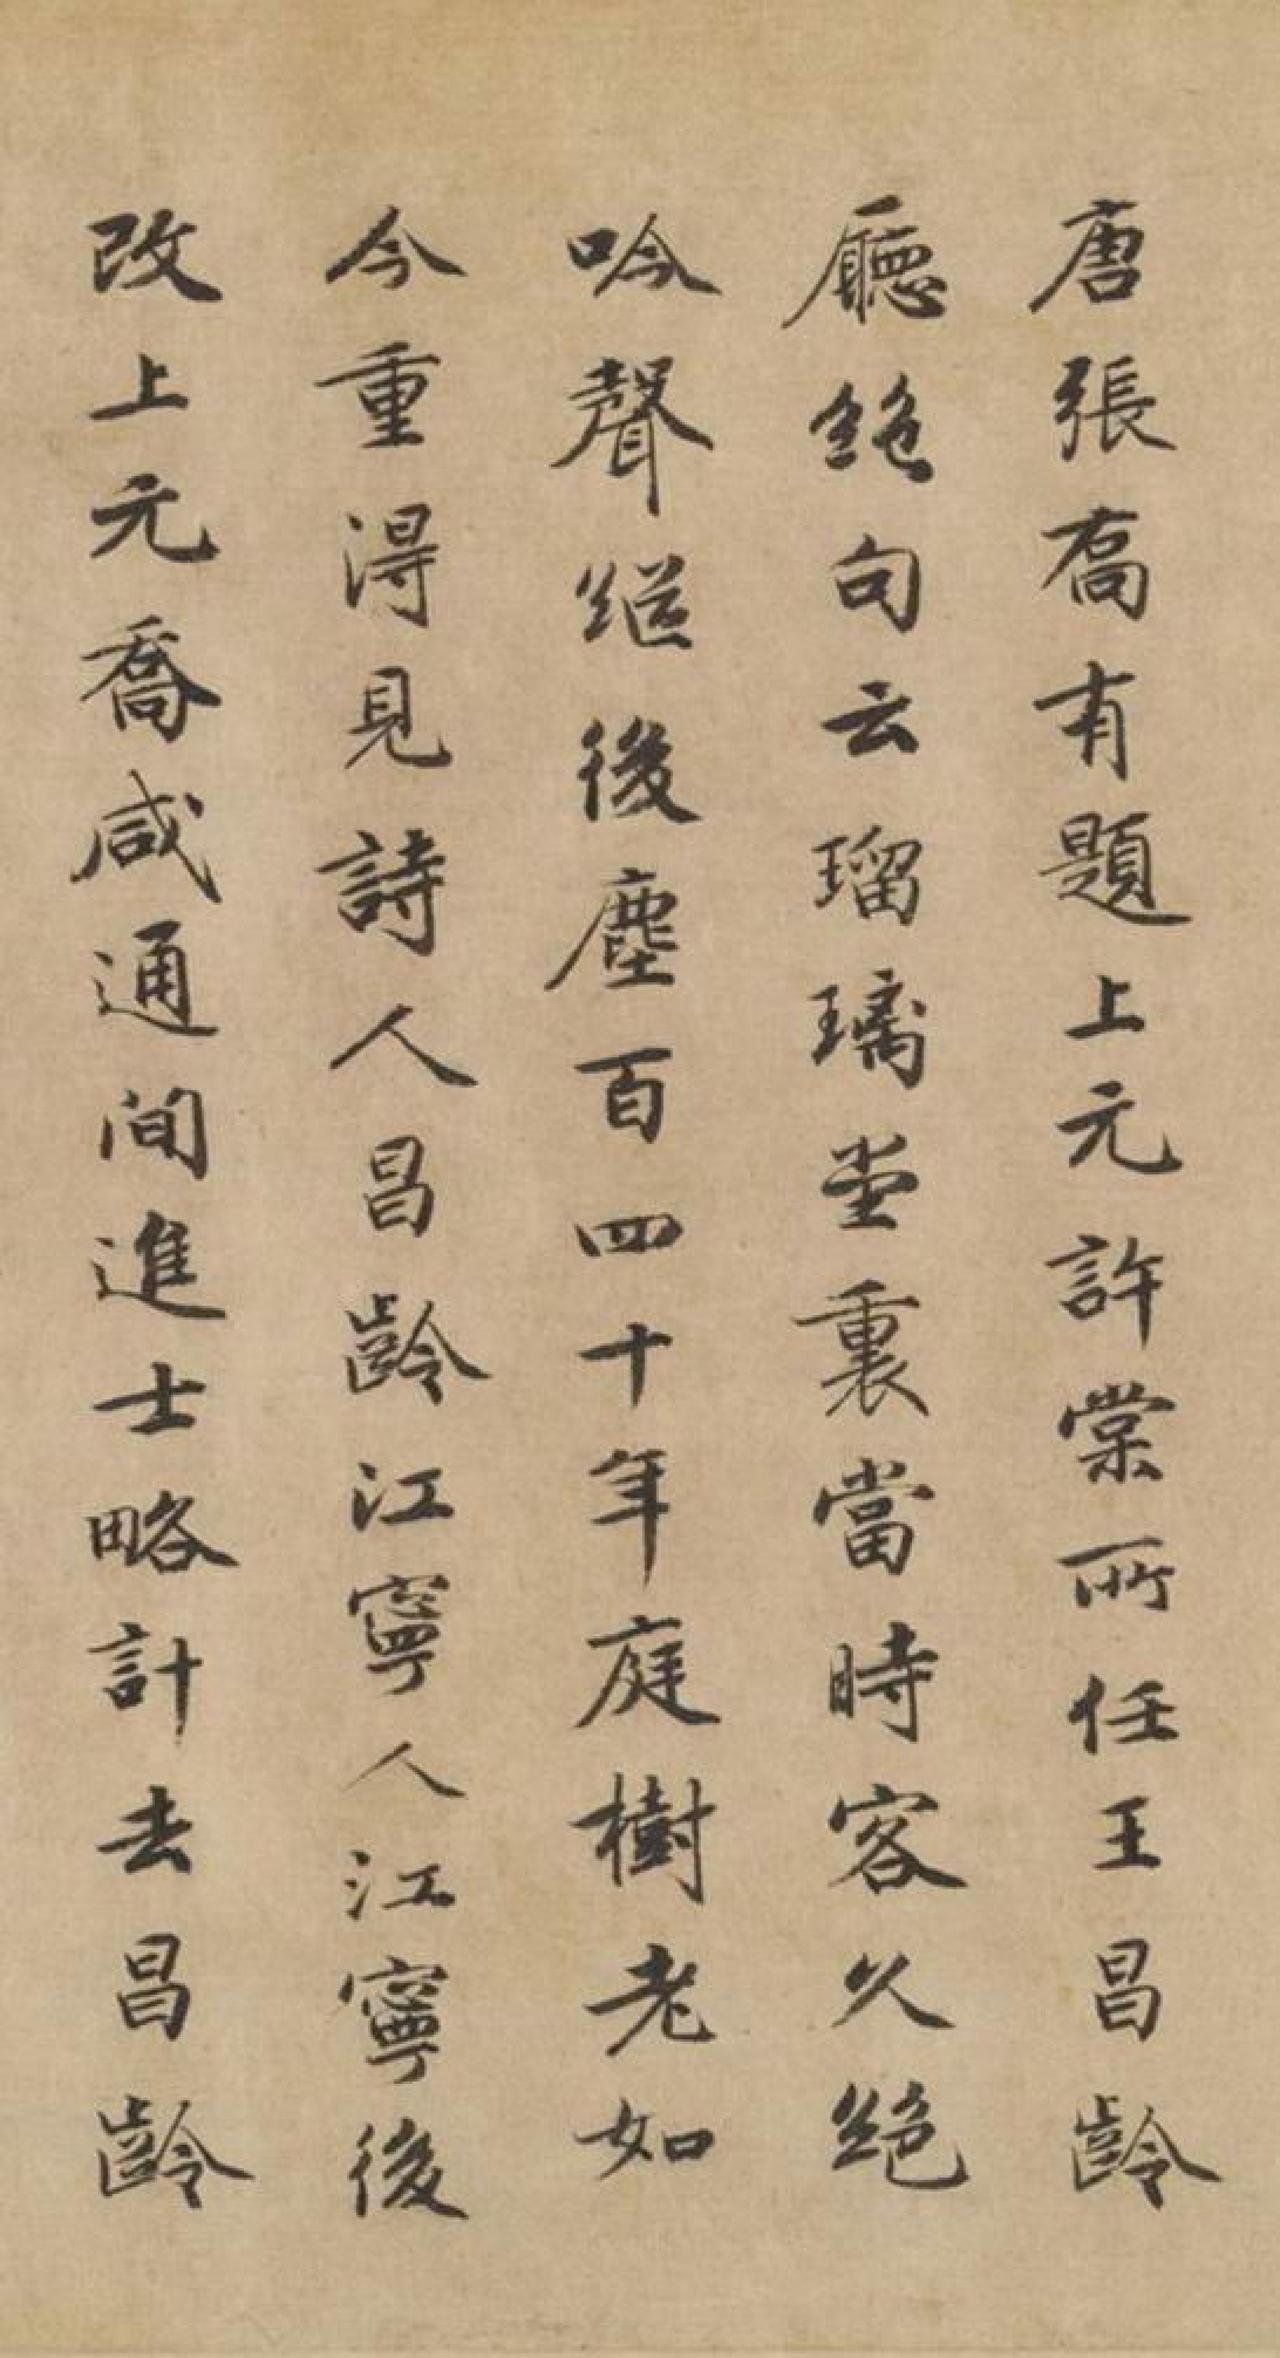 唐張喬有題上元許棠所任王昌齡
廳絶句云瑠璃堂裏當時客久絶
吟聲继後塵百四十年庭樹老如
今重得見詩人昌齡江寧人江寧後
改上元喬咸通間進士略計去昌齡